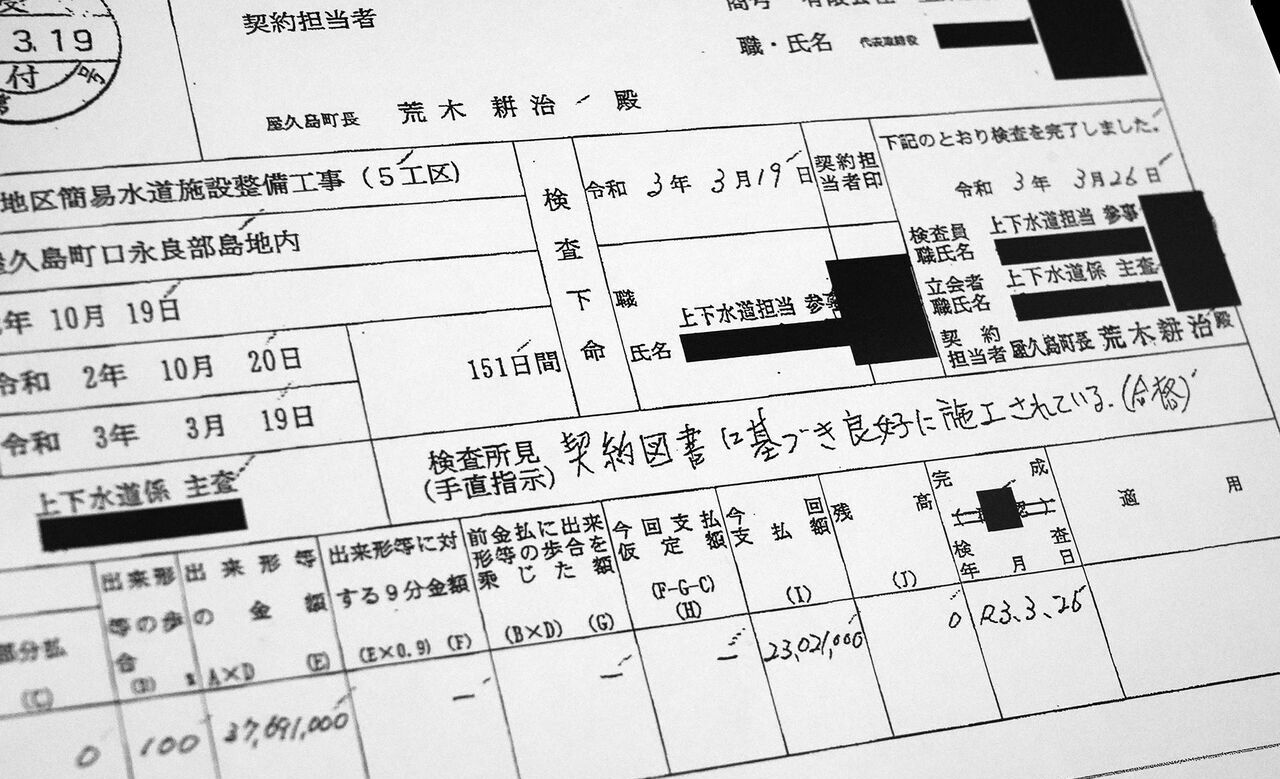 3.19
付
号
契約担当者
職・氏名 代表取締役
屋久島町長 荒木 耕治 殿
地区簡易水道施設整備工事(5工区)
屋久島町口永良部島地内
年 10月 19日
令和 2年 10月 20日
令和 3年 3月 19日
151日間
上下水道係 主査
検査下命
令和 3年 3月19日
契約担当者印
職
上下水道担当 参事
氏名
下記のとおり検査を完了しました。
令和 3年 3月26日
検査員
職氏名
上下水道担当 参事
立会者
職氏名
上下水道係 主査
契約
担当者 屋久島町長 荒木耕治 殿
検査所見
(手直指示)
契約図書に基づき良好に施工されている.(合格)
部分払
(C)
出来形
等の歩
合
(D) %
出来形等
の金額
A×D (E)
出来形等に対
する9分金額
(E×0.9) (F)
前金払に出来
形等の歩合を
乗じた額
(B×D) (G)
今回支払
仮定額
(F-G-C)
(H)
今回
支払額
(I)
残高
(J)
完成
検査
年月日
適用
0
100
37,691,000
—
—
—
23,021,000
0
R3.3.26